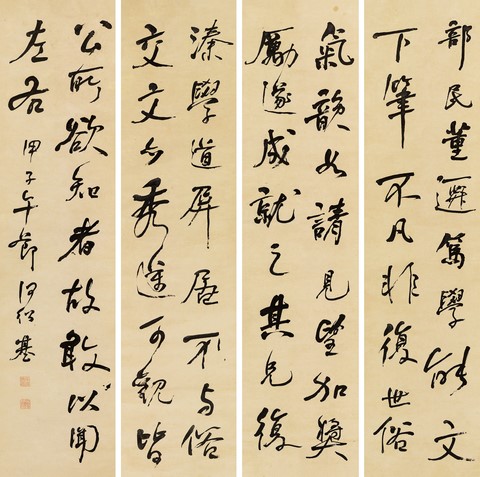 部民董遷篤學能文
下筆不凡非復世俗
氣韻如請見望加獎
勵遂成就之其兄復
溱學道屏居不與俗
交文亦秀遠可觀皆
公所欲知者故敢以聞
左右 甲子午節 何紹基